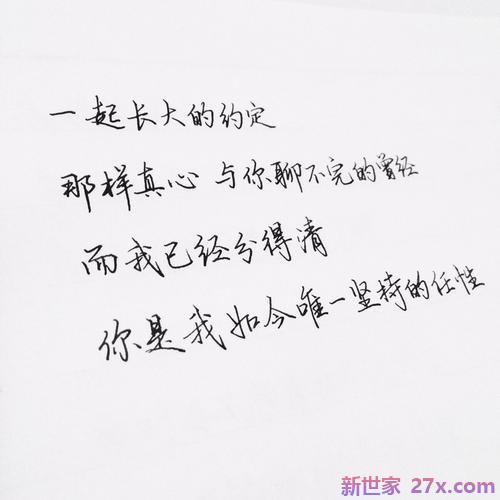 一起长大的约定
那样真心 与你聊不完的曾经
而我已经分得清
你是我如今唯一坚持的任性
新世家 27x.com